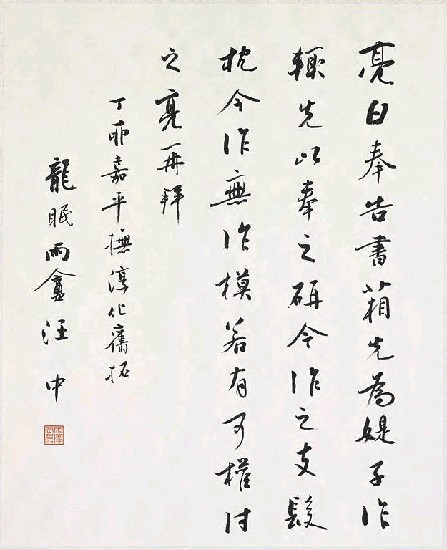 亮白奉告書箱先為媞子作
輒先以奉之研今作之支髮
枕今作無作模若有可權付
之亮再拜
丁卯嘉平橅淳化舊拓
龍眠雨盦汪中